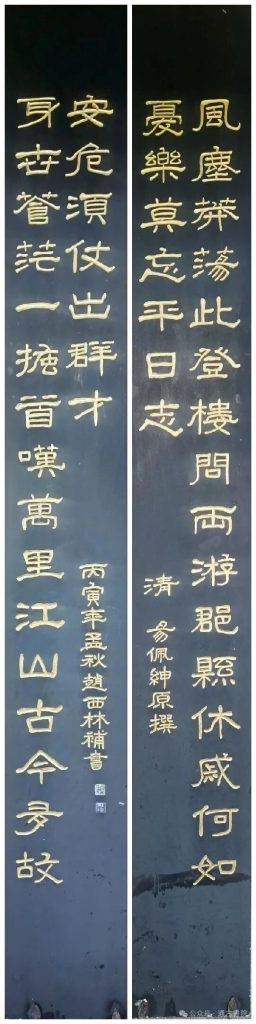 風塵莽蕩此登樓問両游郡縣休戚何如
憂樂莫忘平日志
清 易佩紳原撰
身世蒼茫一搔首嘆萬里江山古今多故
安危須仗出群才
丙寅年孟秋趙西林補書
公众号